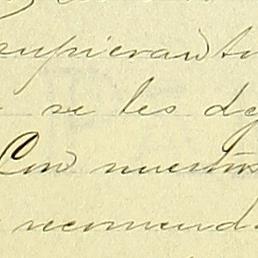 cupieran tu
se les de
Con nuestros
recomend